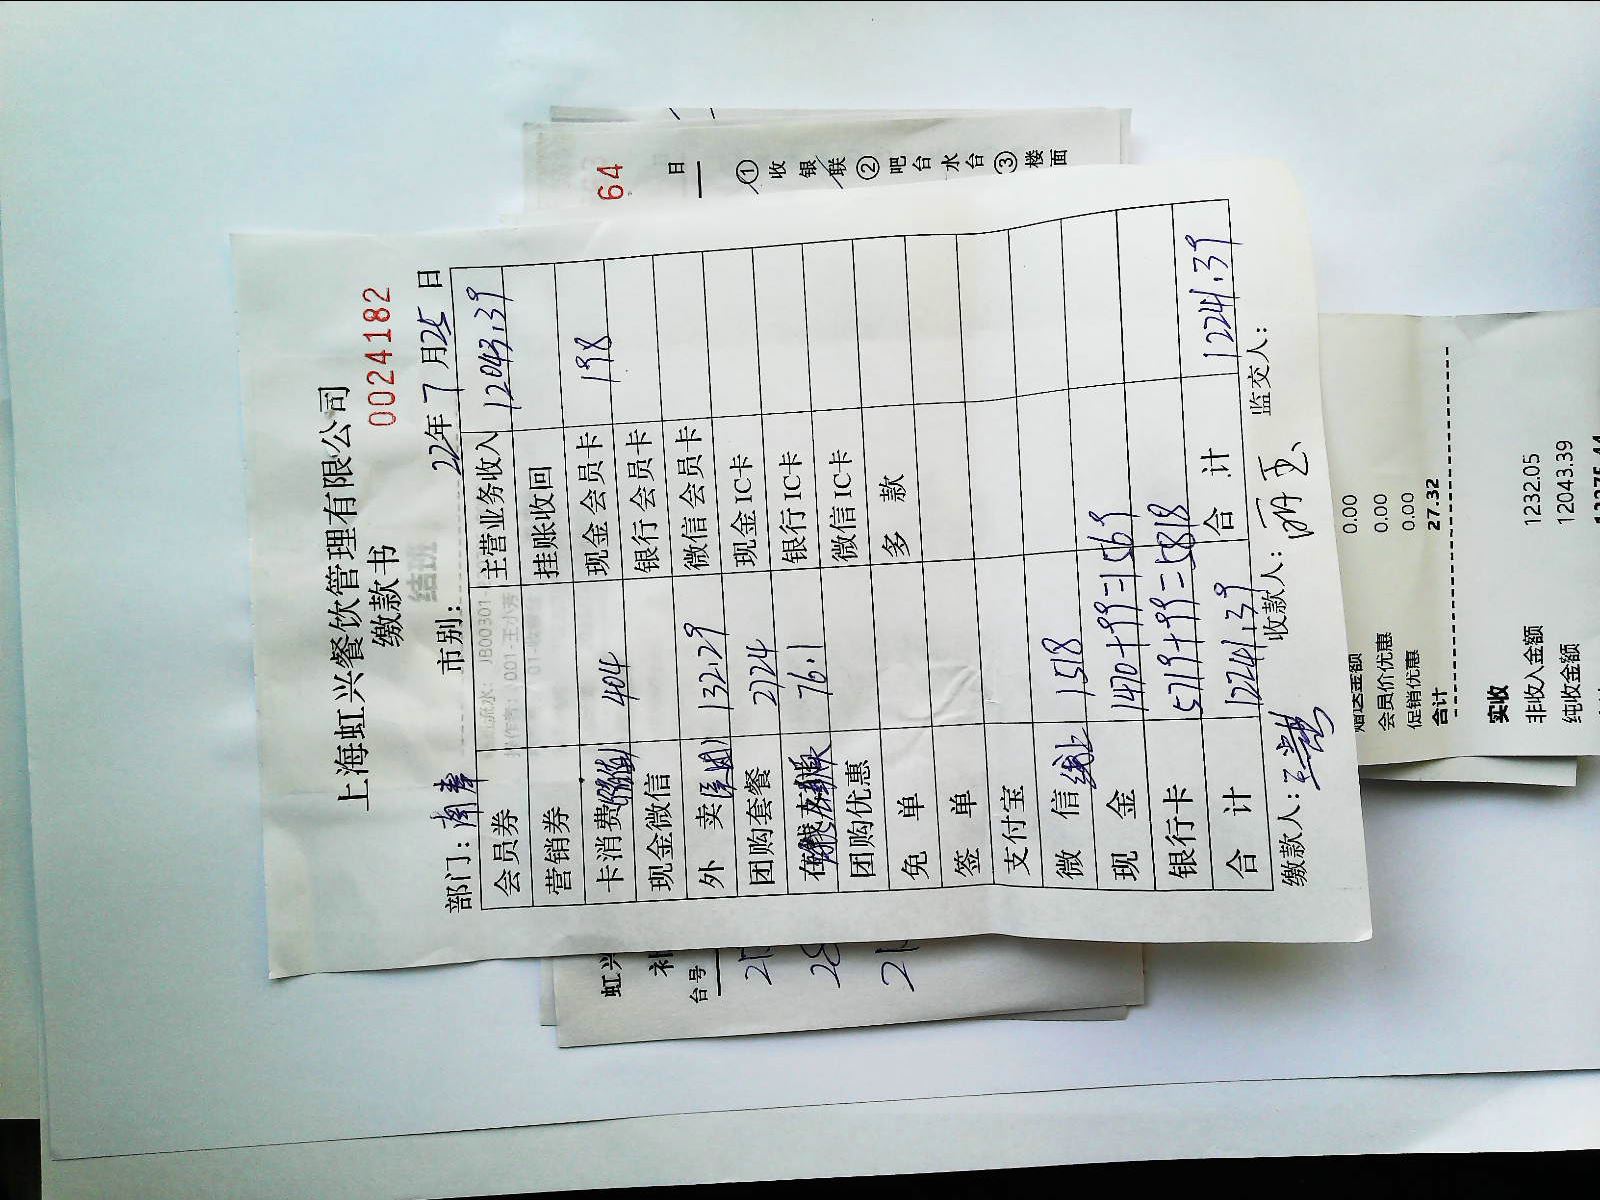 上海虹兴餐饮管理有限公司
缴款书
0024182
部门: 南 市别: 22年7月25日
会员券 主营业务收入 12043.39
营销券 挂账收回
卡消费 404 现金会员卡 198
现金微信 银行会员卡
外卖 132.29 微信会员卡
团购套餐 2724 现金IC卡
76.1 银行IC卡
团购优惠 微信IC卡
免单 多款
签单
支付宝
微信 线上 1518
现金 1470+99=1569
银行卡 5719+99=5818
合计 12241.39 合计 12241.39
缴款人: 收款人: 监交人:
结班
流水: JB00301-
001-王小芳
64
日
①收银联②吧台水台③楼面
虹兴
补
台号
21
28
21
0.00
会员价优惠 0.00
促销优惠 0.00
合计 27.32
实收
非收入金额 1232.05
纯收金额 12043.39